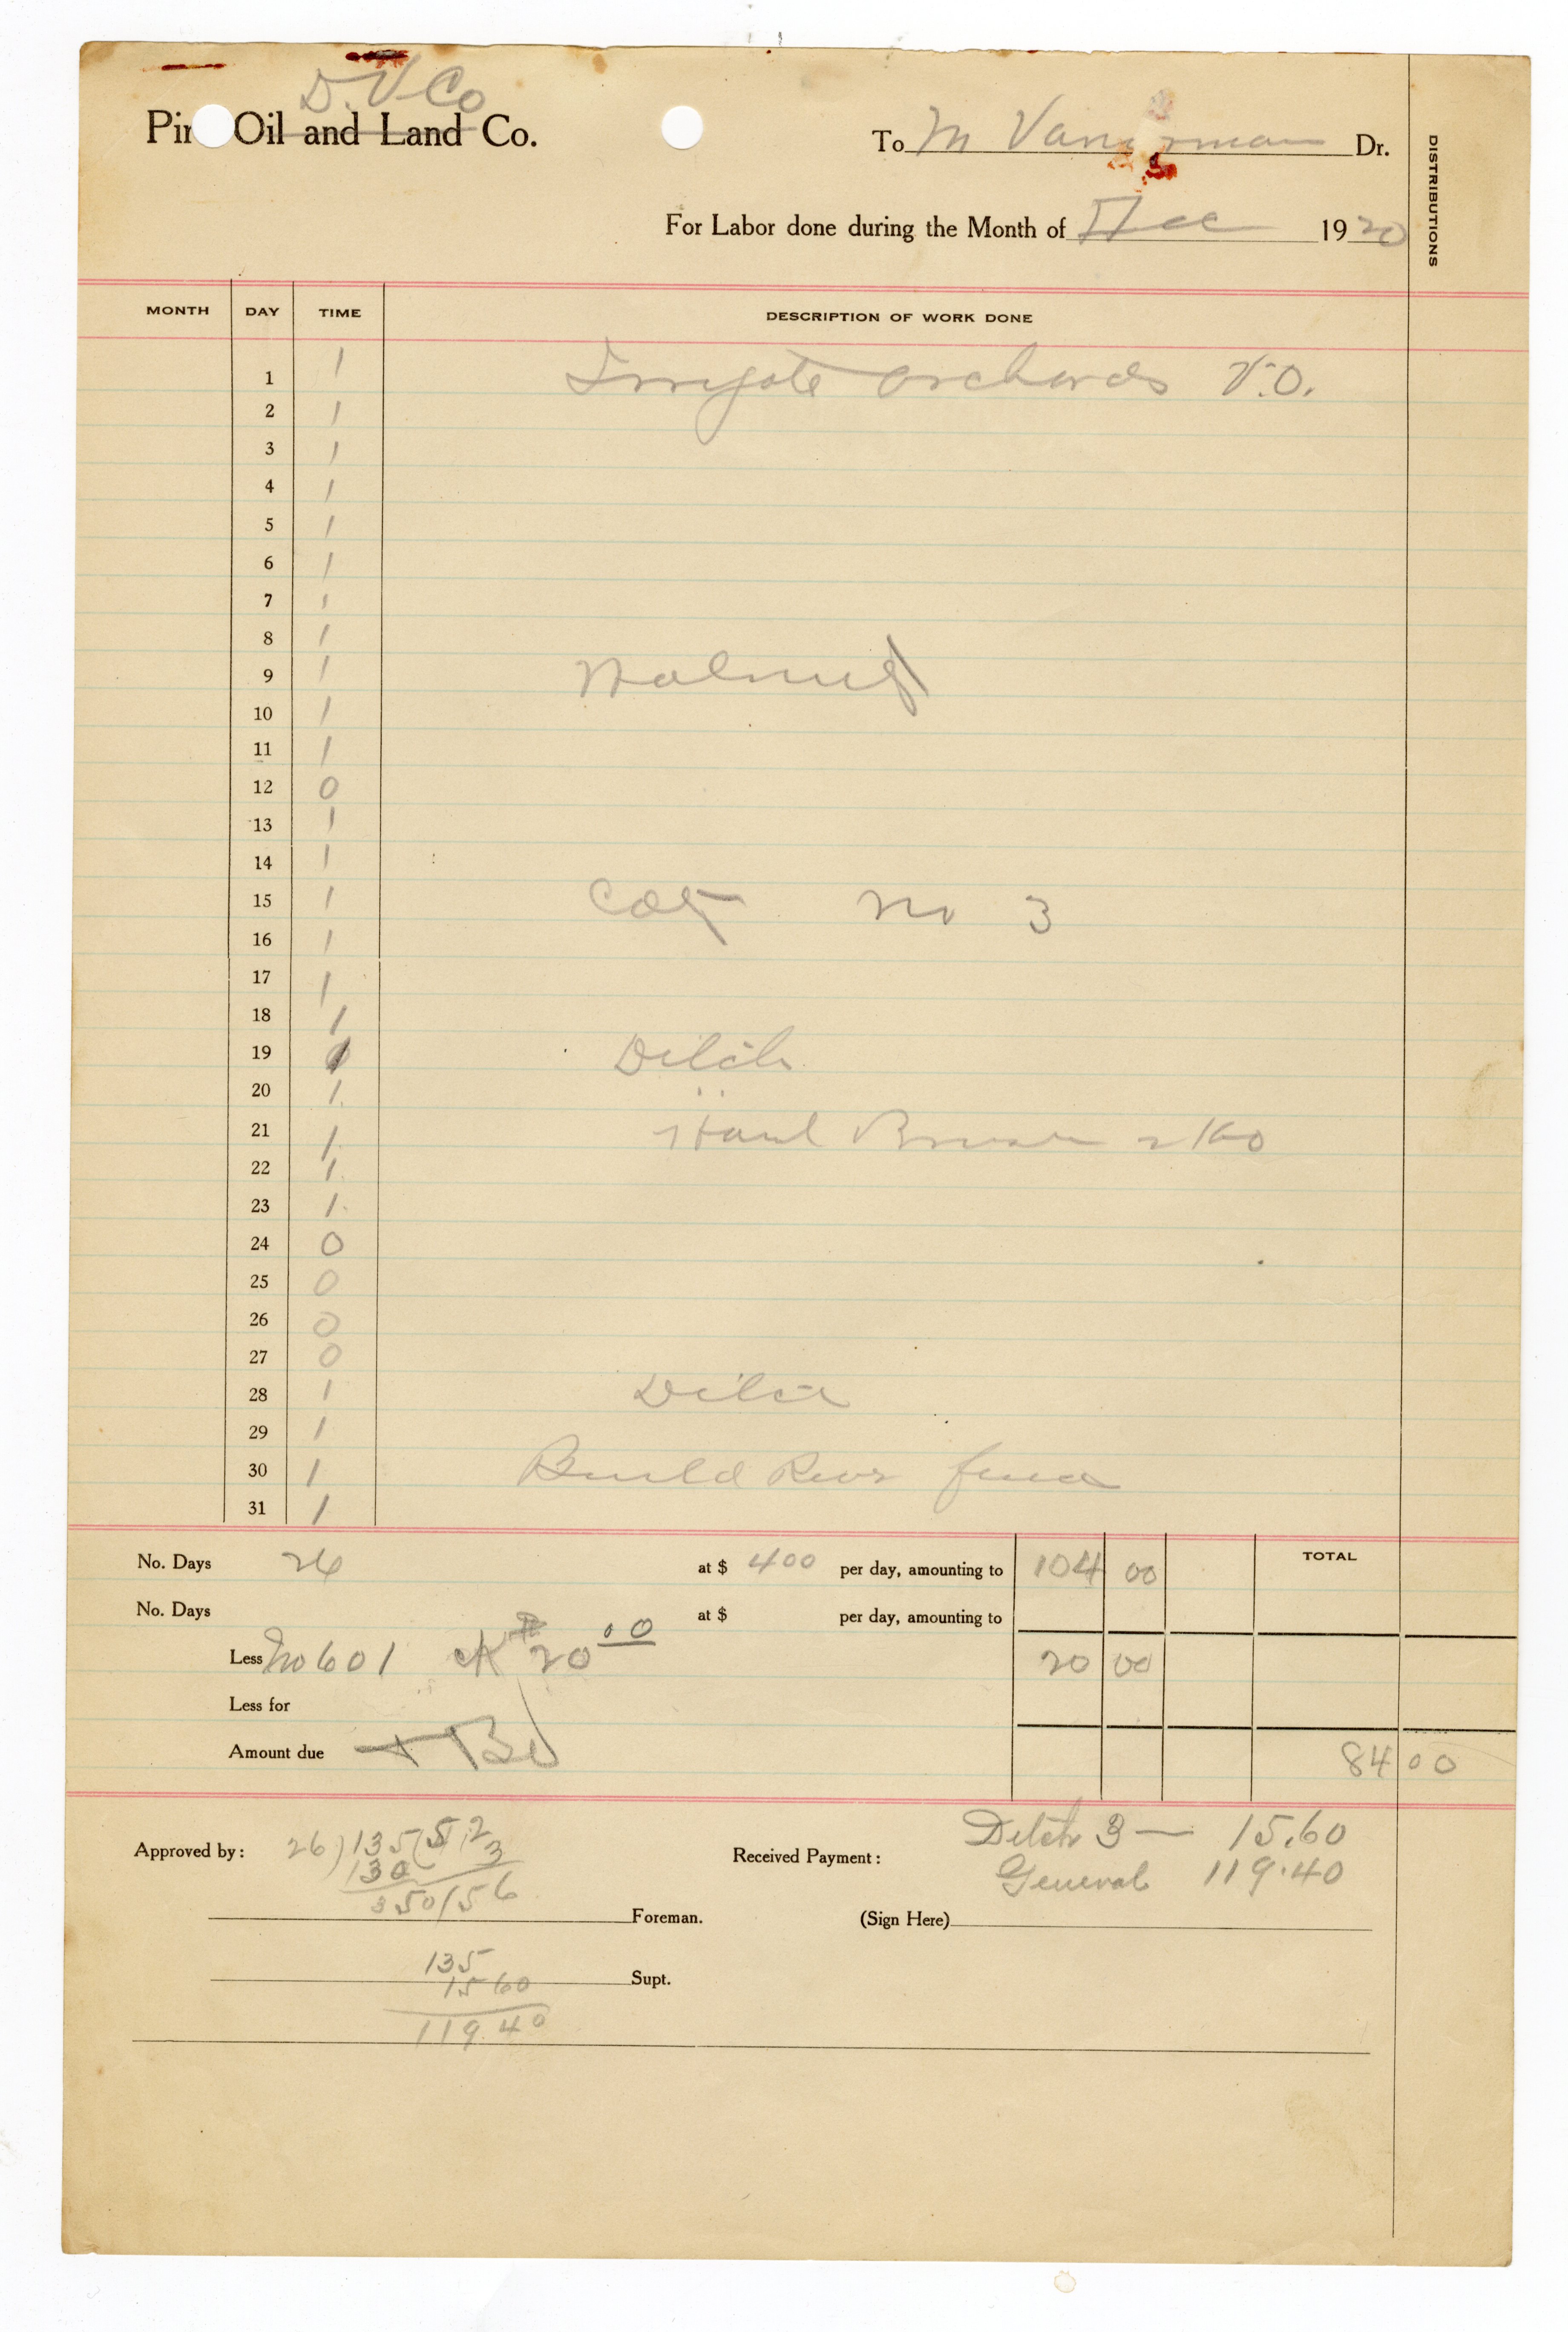 D. V Co
Pir Oil and Land Co.
To M Van rman Dr.
DISTRIBUTIONS
For Labor done during the Month of Dec 1920
MONTH DAY TIME DESCRIPTION OF WORK DONE
1 1 Irrigate orchards V.O.
2 1
3 1
4 1
5 1
6 1
7 1
8 1
9 1 Walnuts
10 1
11 1
12 0
13 1
14 1
15 1 Cot No 3
16 1
17 1
18 1
19 1 Ditch
20 1
21 1 Haul Brush
22 1
23 1
24 0
25 0
26 0
27 0
28 1 Ditch
29 1
30 1 Build River fence
31 1
No. Days 26 at $ 400 per day, amounting to 104 00 TOTAL
No. Days at $ per day, amounting to
Less No 601 ck # 20 00 20 00
Less for
Amount due 84 00
Ditch 3 — 15.60
Approved by: 26)135(5.2 Received Payment:
130 3 General 119.40
50/156
Foreman. (Sign Here)
135
1560 Supt.
119.40